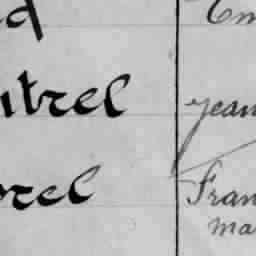 d Em
utrel Jean
orel Fran
ma